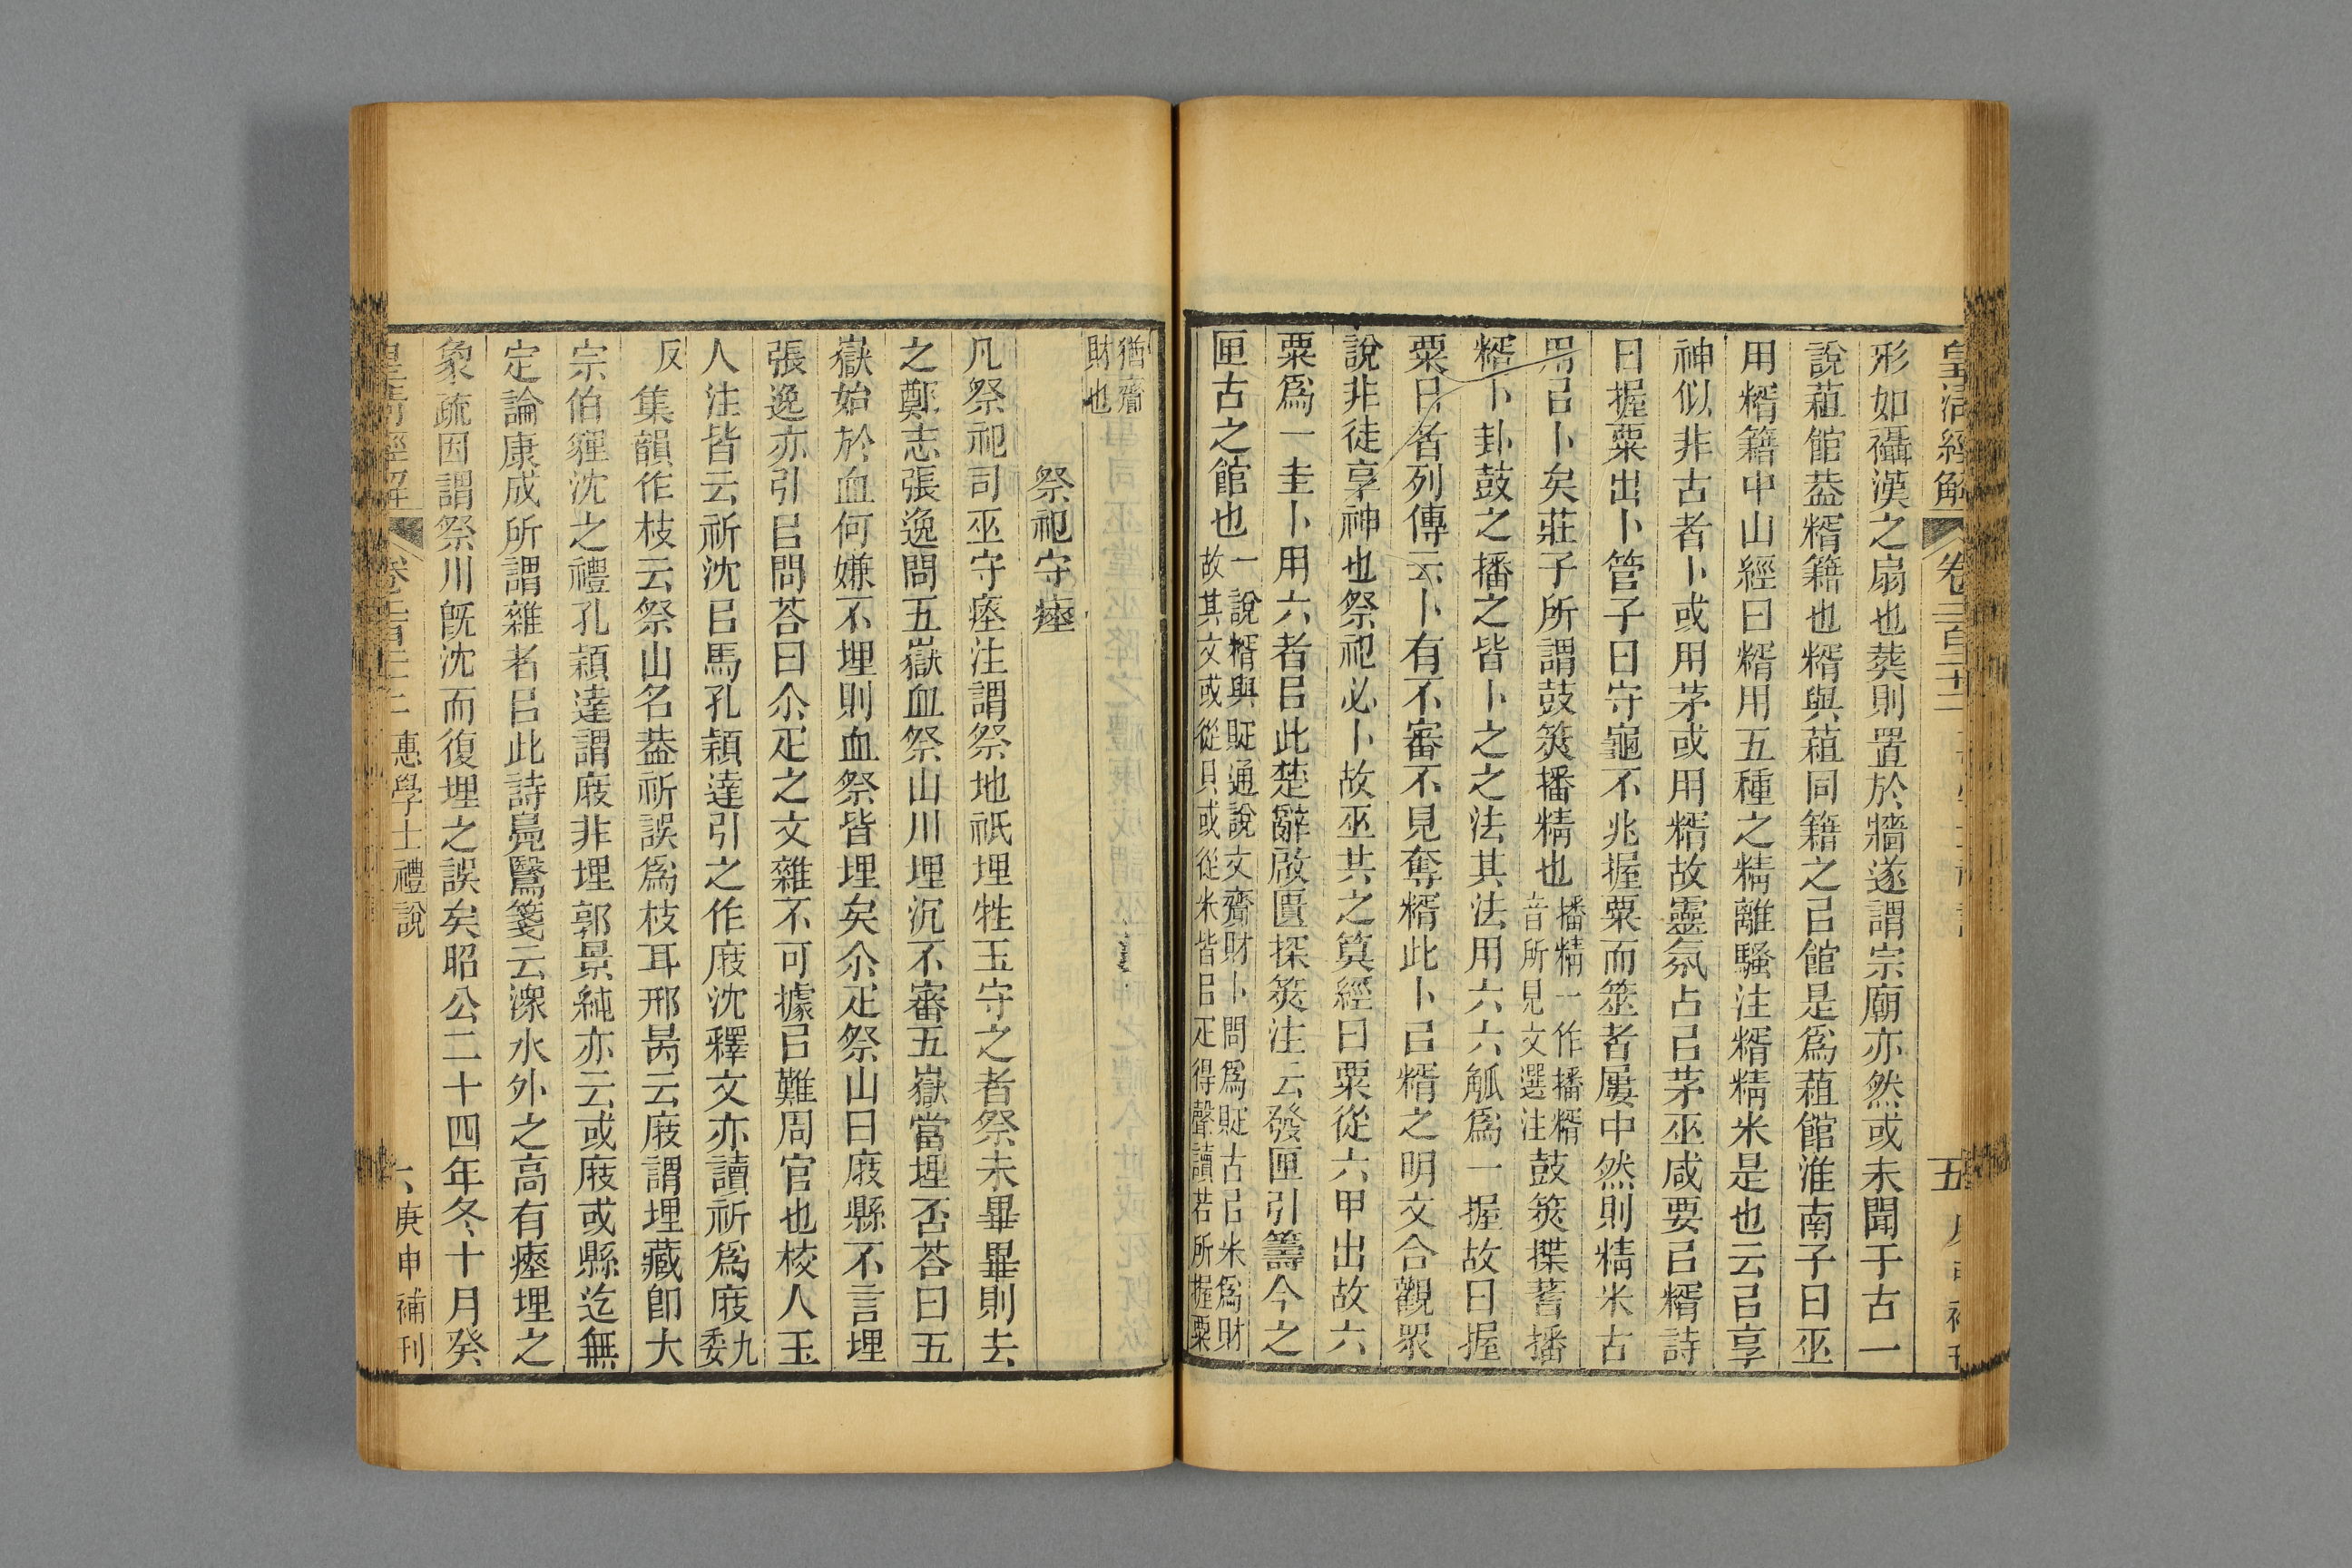 皇清經解 卷二百二十二 五
形如襵漢之扇也葬則置於牆遂謂宗廟亦然或未聞于古一
說蒩館葢糈籍也糈與蒩同籍之㠯館是爲蒩館淮南子曰巫
用糈籍中山經曰糈用五種之精離騷注糈精米是也云㠯享
神似非古者卜或用茅或用糈故靈氛占㠯茅巫咸要㠯糈詩
曰握粟出卜管子曰守龜不兆握粟而筮者屢中然則精米古
用㠯卜矣莊子所謂鼓筴播精也播精一作播糈音所見文選注鼓筴揲蓍播
糈卜卦鼓之播之皆卜之之法其法用六六觚爲一握故曰握
粟日者列傳云卜有不審不見奪糈此卜㠯糈之明文合觀眾
說非徒享神也祭祀必卜故巫共之筭經曰粟從六甲出故六
粟爲一圭卜用六者㠯此楚辭啟匱探筴注云發匣引籌今之
匣古之館也一說糈與貶通說文齎財卜問爲貶古㠯米爲財故其文或從貝或從米皆㠯疋得聲讀若所握粟
猶齎財也
祭祀守瘞
凡祭祀司巫守瘞注謂祭地祇埋牲玉守之者祭未畢畢則去
之鄭志張逸問五嶽血祭山川埋沉不審五嶽當埋否荅曰五
嶽始於血何嫌不埋則血祭皆埋矣尒疋祭山曰庪縣不言埋
張逸亦引㠯問荅曰尒疋之文雜不可據㠯難周官也校人玉
人注皆云祈沈㠯馬孔穎達引之作庪沈釋文亦讀祈爲庪九委
反集韻作枝云祭山名葢祈誤爲枝耳邢昺云庪謂埋藏卽大
宗伯貍沈之禮孔穎達謂庪非埋郭景純亦云或庪或縣迄無
定論康成所謂雜者㠯此詩鳧鷖箋云潨水外之高有瘞埋之
象疏因謂祭川旣沈而復埋之誤矣昭公二十四年冬十月癸
皇清經解 卷二百二十二 惠學士禮說 六 庚申補刊